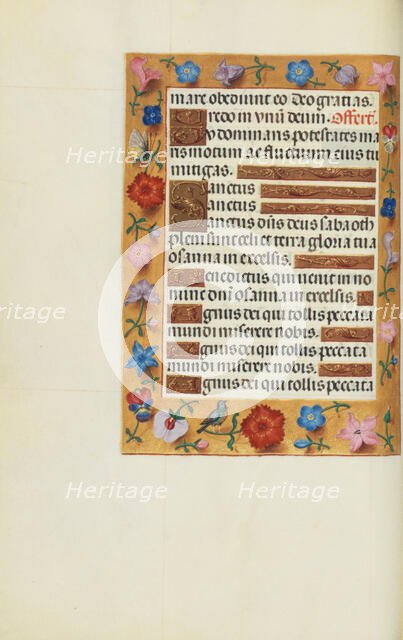 mare obediunt eo Deo gratias.
Credo in vnū deum. Offert'.
Qy dominans potestates ma
res motum ac fluctuum eius tu
mitigas.
Sanctus
Sanctus
Sanctus dn̄s deus sabaoth
pleni sunt celi et terra gloria tua
osanna in excelsis.
Benedictus qui uenit in no
mine dnī osanna in excelsis.
Agnus dei qui tollis peccata
mundi miserere nobis.
Agnus dei qui tollis peccata
mundi miserere nobis.
Agnus dei qui tollis peccata
Heritage
Heritage
Heritage
Heritage
Heritage
Heritage